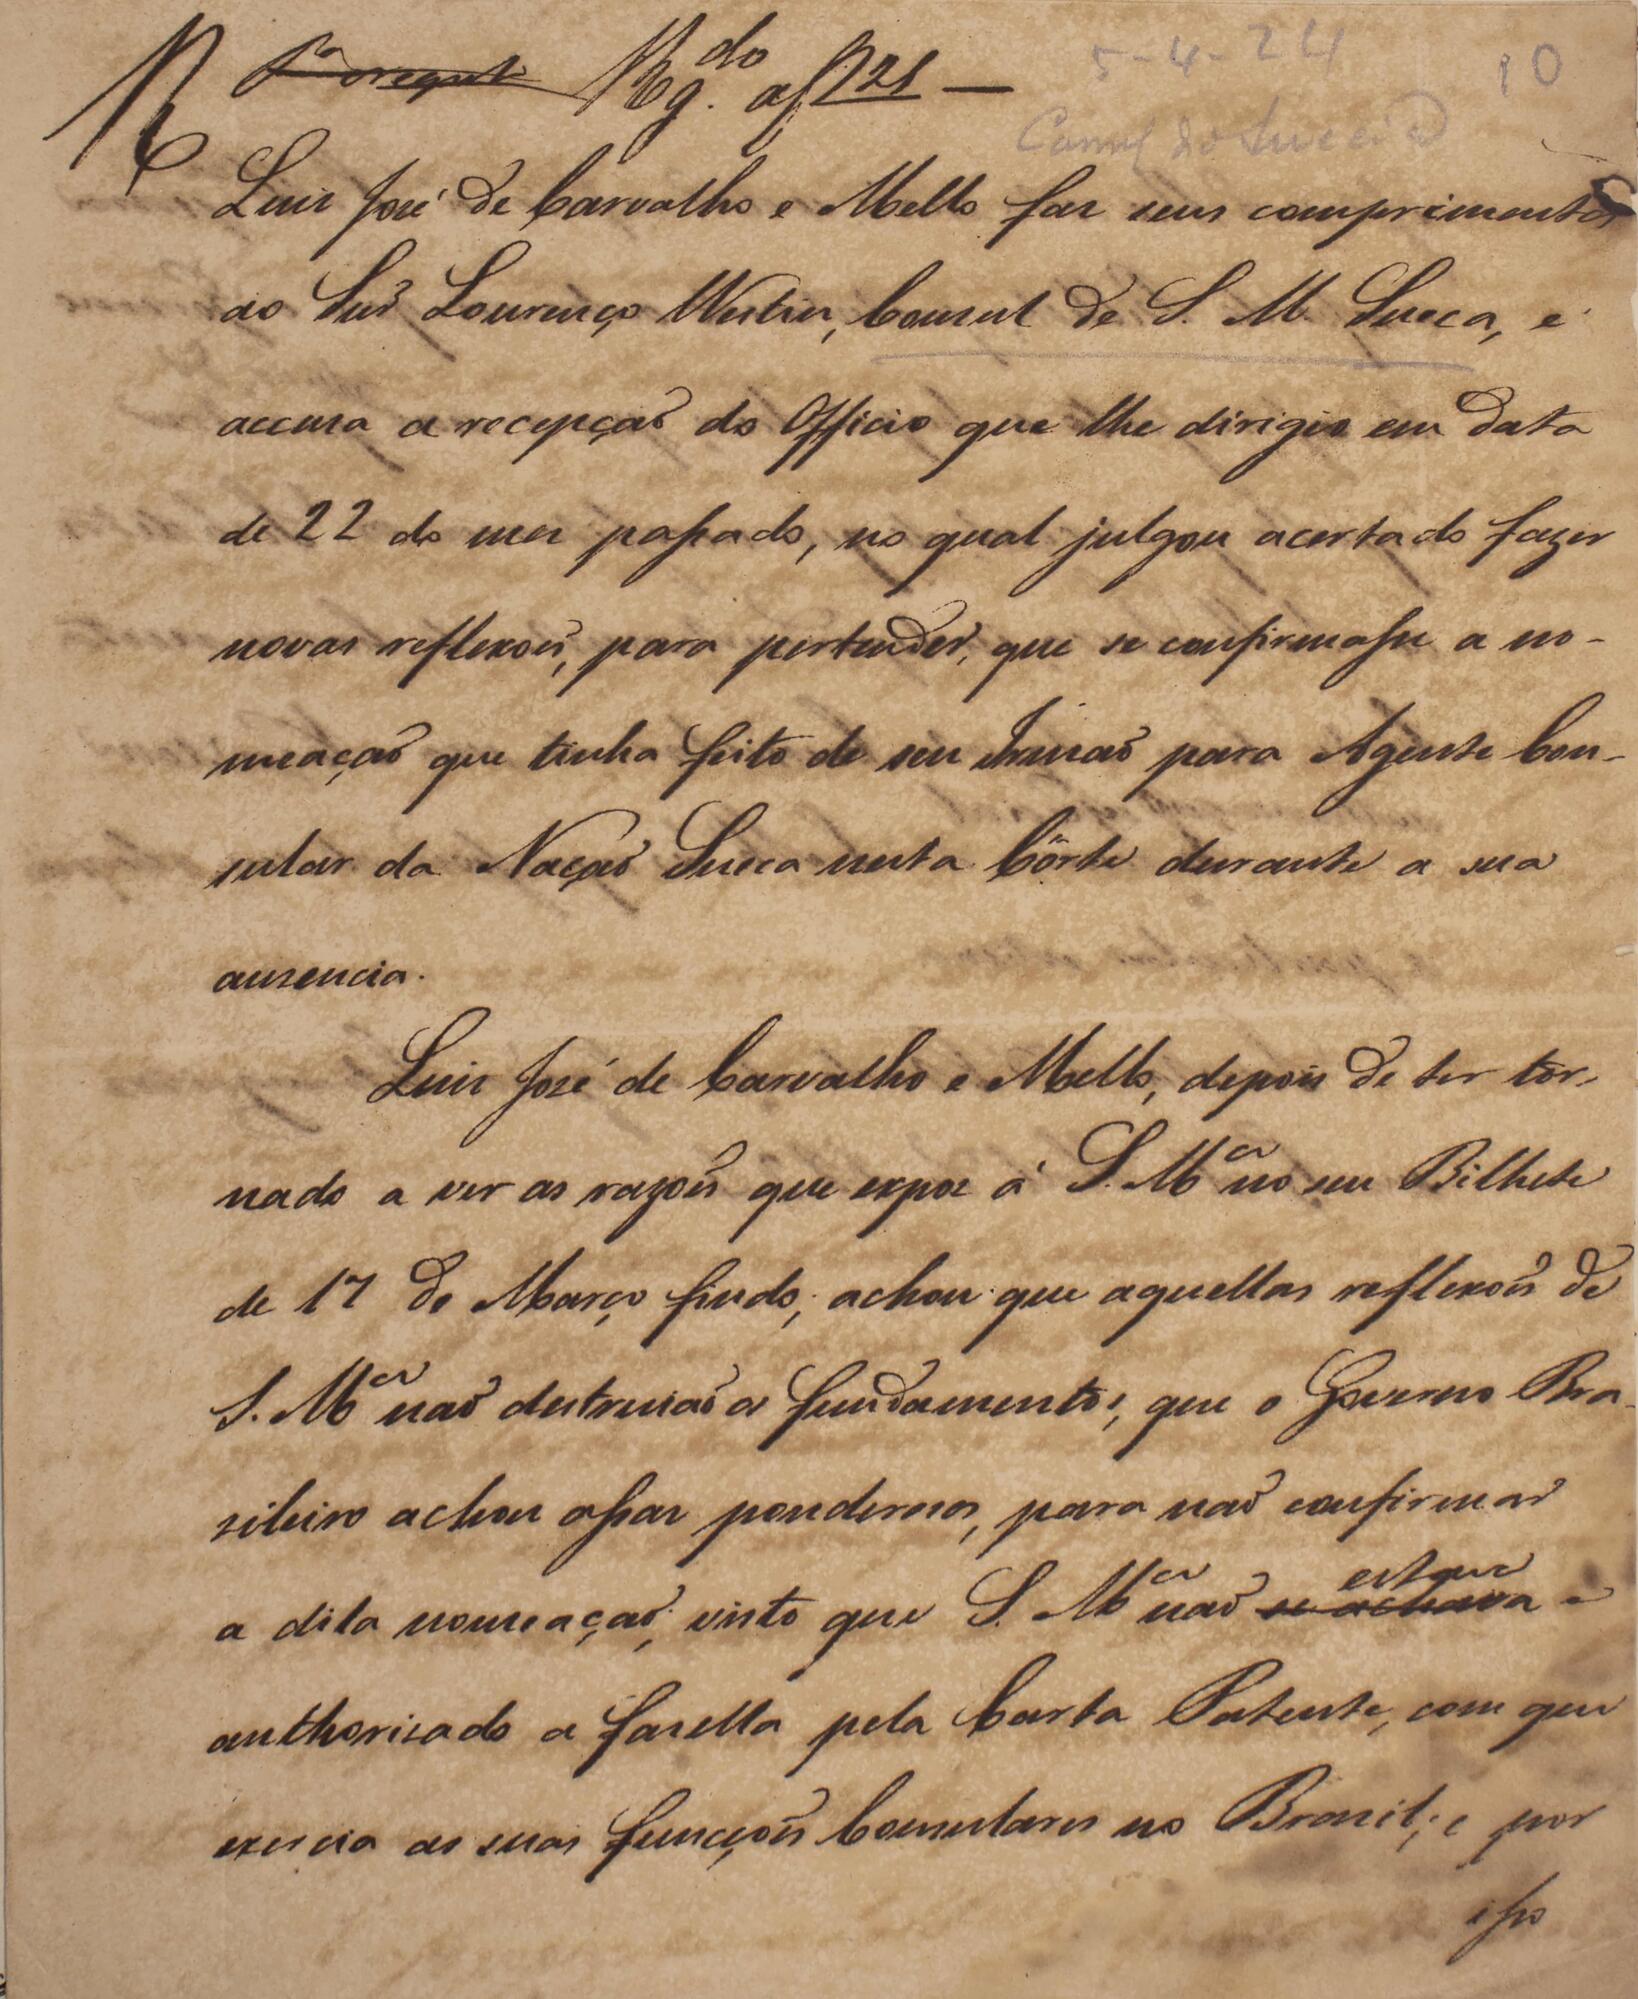 Rg.do a f 121 —
5-4-24
10
Luis José de Carvalho e Mello faz seus comprimentos
ao Snr̃ Lourenço Westin, Consul de S. M. Sueca, e
accusa a recepçaõ do Officio que lhe dirigio em data
de 22 do mez passado, no qual julgou acertado fazer
novas reflexoẽs, para pertender, que se confirmasse a no-
meaçaõ que tinha feito de seu Irmaõ para Agente Con-
sular da Naçaõ Sueca nesta Côrte durante a sua
ausencia.
Luis José de Carvalho e Mello, depois de ter tor-
nado a ver as razoẽs que expoz á S. Mcê no seu Bilhete
de 17 de Março findo, achou que aquellas reflexoẽs de
S. Mcê naõ destruiaõ os fundamentos, que o Governo Bra-
sileiro achou assaz ponderosos, para naõ confirmar
a dita nomeaçaõ; visto que S. Mcê naõ se achava
authorisado a fazella pela Carta Patente, com que
exercia as suas funcçoẽs Consulares no Brasil; e por
isso